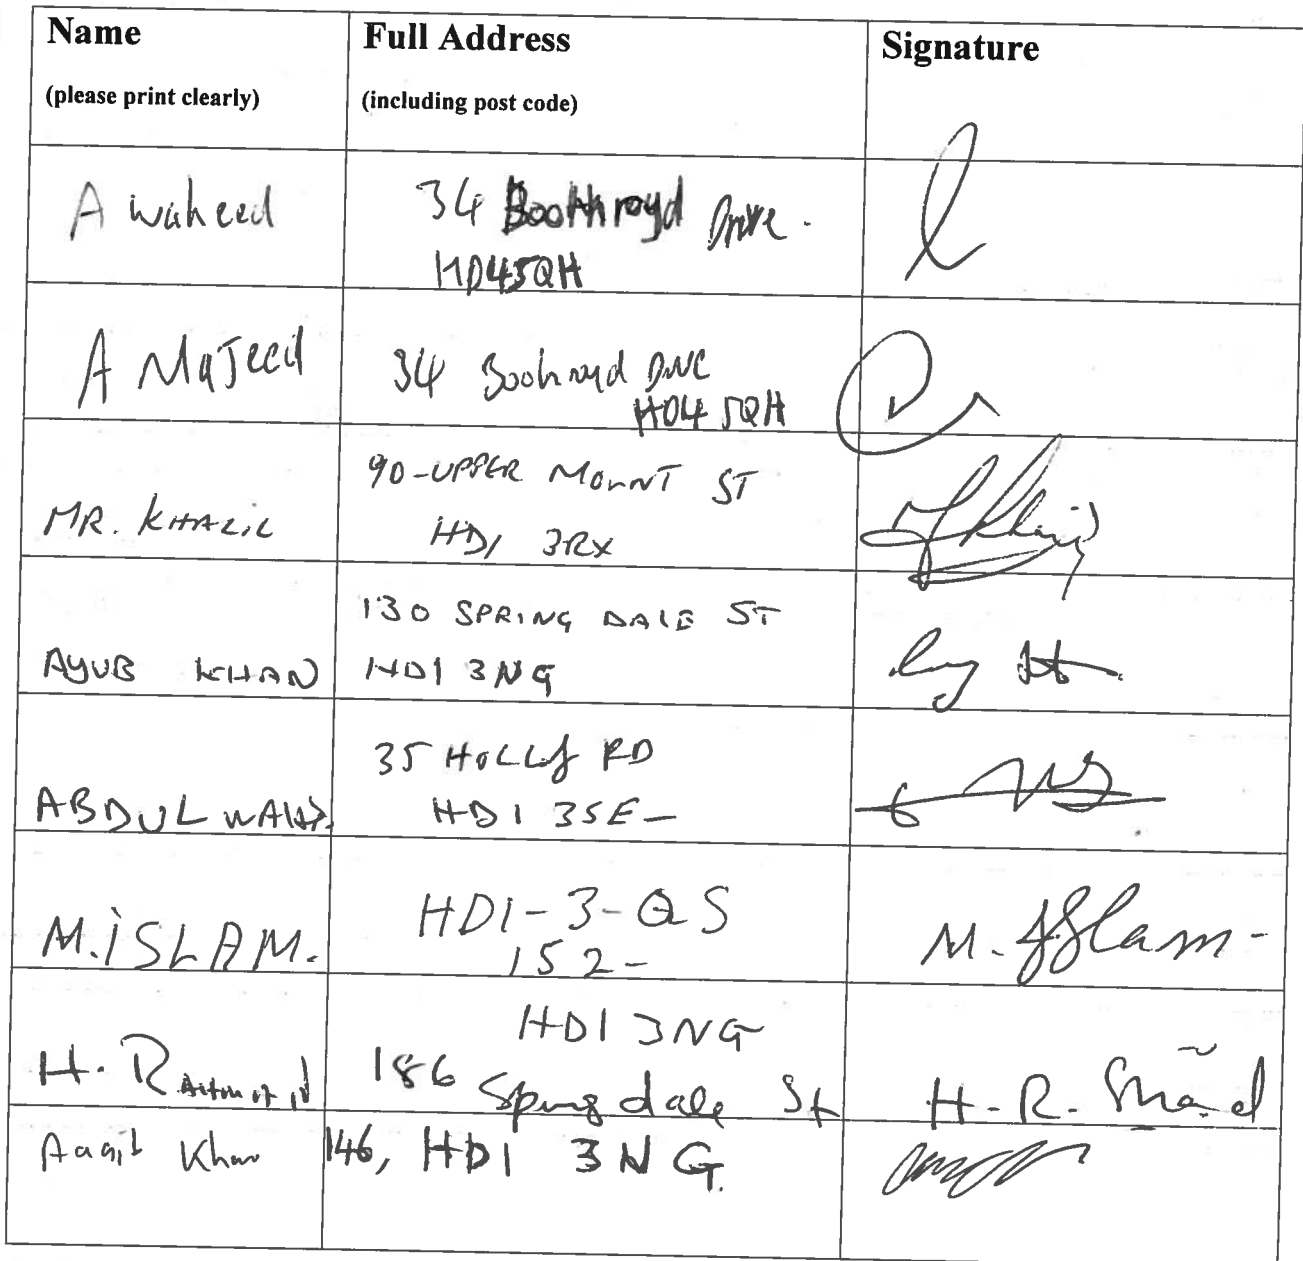 Name
(please print clearly)
Full Address
(including post code)
Signature
A Waheed
34 Boothroyd Drive.
HD45QH
A MaJeed
34 Boohroyd
HD4 5QH
MR. KHALIL
90-UPPER MOUNT ST
HD1 3RX
AYUB KHAN
130 SPRING DALE ST
HD1 3NG
ABDUL
35 HOLLY RD
HD1 3SE-
M.iSLAM.
HD1-3-QS
152-
M. Islam-
H.
HD1 3NG
186 Springdale St
H-R.
Aaqib Khan
146, HD1 3NG.